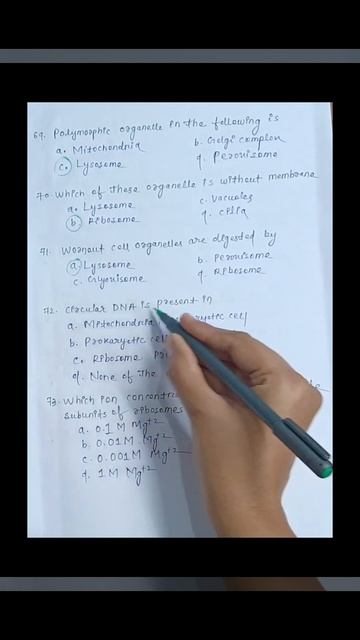 69. Polymorphic organelle in the following is
a. Mitochondria b. Golgi complex
c. Lysosome d. Peroxisome
70. Which of these organelle is without membrane
a. Lysosome c. Vacuoles
b. Ribosome d. Cilia
71. Wornout cell organelles are digested by
a. Lysosome b. Peroxisome
c. Glyoxisome d. Ribosome
72. Circular DNA is present in
a. Mitochondria cell
b. Prokaryotic cell
c. Ribosome
d. None of the
73. Which ion
subunits of ribosomes
a. 0.1 M Mg+2
b. 0.01M Mg+2
c. 0.001M Mg+2
d. 1M Mg+2